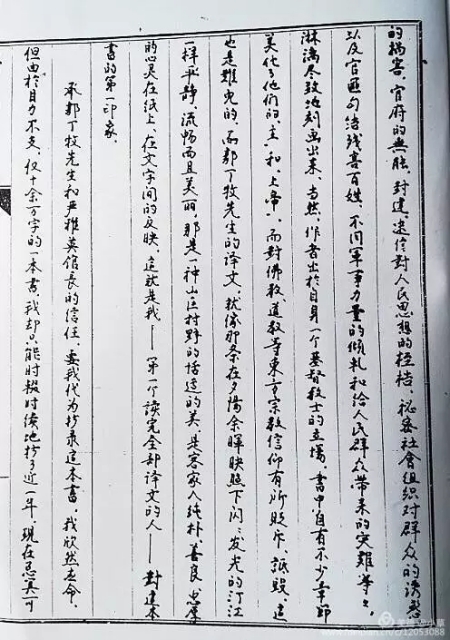 的祸害、官府的無能、封建、迷信對人民思想的桎梏、祕密社會組织对群众的诱惑
以及官匪勾结残害百姓、不同軍事力量的傾軋和给人民群众带来的灾難等々，
淋漓尽致地刻画出来。当然，作者出於自身一个基督教士的立場，書中自有不少章節
美化了他們的“主”和“上帝”，而對佛教、道教等東方宗教信仰有所貶斥、詆毁，這
也是難免的。而郭丁牧先生的译文，就像那条在夕陽余暉映照下闪々发光的汀江
一样平静、流暢而且美丽，那是一种山区村野的恬适的美，是客家人纯朴、善良、忠厚
的心灵在纸上，在文字间的反映。这就是我——第一个读完全部译文的人——對這本
書的第一印象。
承郭丁牧先生和严雅英馆長的信任，委我代为抄录这本書，我欣然应命，
但由於目力不支，仅十余万字的一本書，我却只能时輟时续地抄了近一年，現在总算可